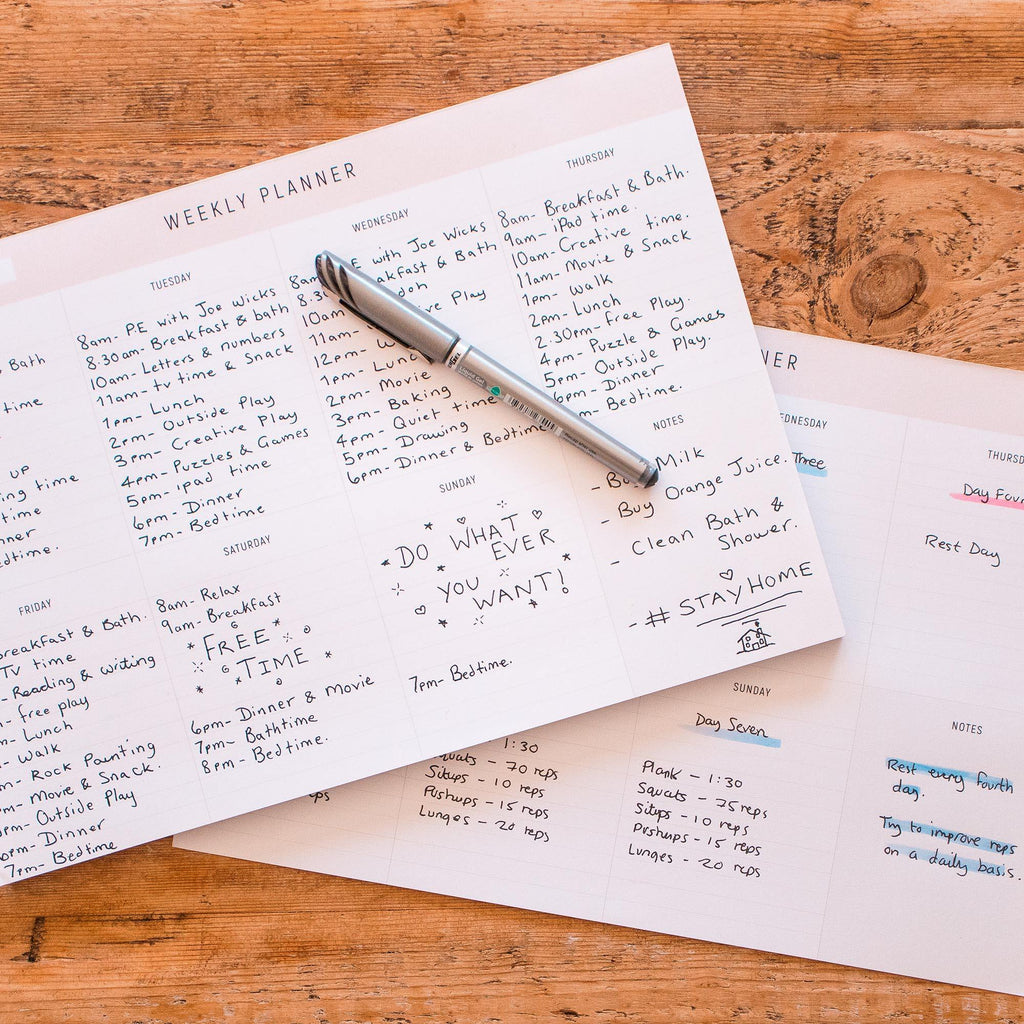 WEEKLY PLANNER
Bath
time
up
ing time
time
nner
edtime.
TUESDAY
8am- P.E with Joe Wicks
8.30am- Breakfast & bath
10am- Letters & numbers
11am- tv time & Snack
1pm- Lunch
2pm- Outside Play
3pm- Creative Play
4pm- Puzzles & Games
5pm- ipad time
6pm- Dinner
7pm- Bedtime
WEDNESDAY
8am E with Joe Wicks
8.3 akfast & Bath
10am doh
11am- ve Play
12pm- W
1pm- Lunc
2pm- Movie
3pm- Baking
4pm- Quiet time
5pm- Drawing
6pm- Dinner & Bedtime
THURSDAY
8am- Breakfast & Bath.
9am- iPad time.
10am- Creative time.
11am- Movie & Snack
1pm- Walk
2pm- Lunch
2.30pm- free Play.
4pm- Puzzle & Games
5pm- Outside Play.
6pm- Dinner
m- Bedtime.
FRIDAY
reakfast & Bath.
TV time
- Reading & writing
- free play
- Lunch
- Walk
m- Rock Painting
m- Movie & Snack.
pm- Outside Play
6pm- Dinner
7pm- Bedtime
SATURDAY
8am- Relax
9am- Breakfast
FREE
TIME
6pm- Dinner & movie
7pm- Bathtime
8pm- Bedtime.
SUNDAY
DO WHAT
EVER
YOU
WANT!
7pm- Bedtime.
NOTES
- Bu Milk
- Buy Orange Juice.
- Clean Bath &
Shower.
- # STAYHOME
NER
EDNESDAY
Three
THURSD
Day Four
Rest Day
1:30
quats - 70 reps
Situps - 10 reps
Pushups - 15 reps
Lunges - 20 reps
ps
SUNDAY
Day Seven
Plank - 1:30
Squats - 75 reps
Situps - 10 reps
Pushups - 15 reps
Lunges - 20 reps
NOTES
Rest every fourth
day.
Try to improve reps
on a daily basis.